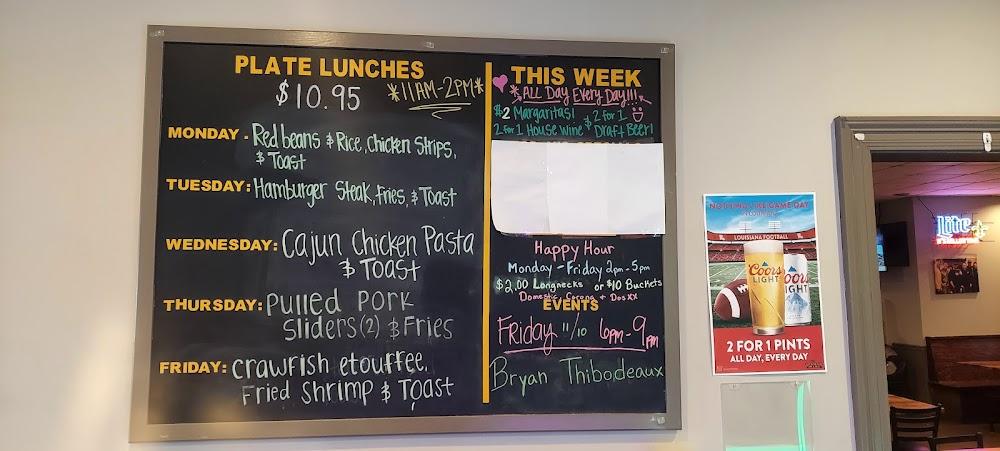 PLATE LUNCHES
$10.95
*11AM-2PM*
MONDAY - Red beans & Rice, Chicken Strips,
& Toast
TUESDAY: Hamburger Steak, Fries, & Toast
WEDNESDAY: Cajun Chicken Pasta
& Toast
THURSDAY: Pulled Pork
Sliders (2) & Fries
FRIDAY: crawfish etouffee,
Fried Shrimp & Toast
THIS WEEK
*ALL DAY Every Day!!!*
$2 Margaritas! & 2 for 1
2 for 1 House Wine Draft Beer!
Happy Hour
Monday - Friday 2pm - 5pm
$2.00 Longnecks or $10 Buckets
Domestic, Corona & Dos XX
EVENTS
Friday 11/10 6pm - 9pm
Bryan Thibodeaux
NOTHING LIKE GAME DAY
LOUISIANA FOOTBALL
Coors
LIGHT
Coors
LIGHT
2 FOR 1 PINTS
ALL DAY, EVERY DAY
Lite